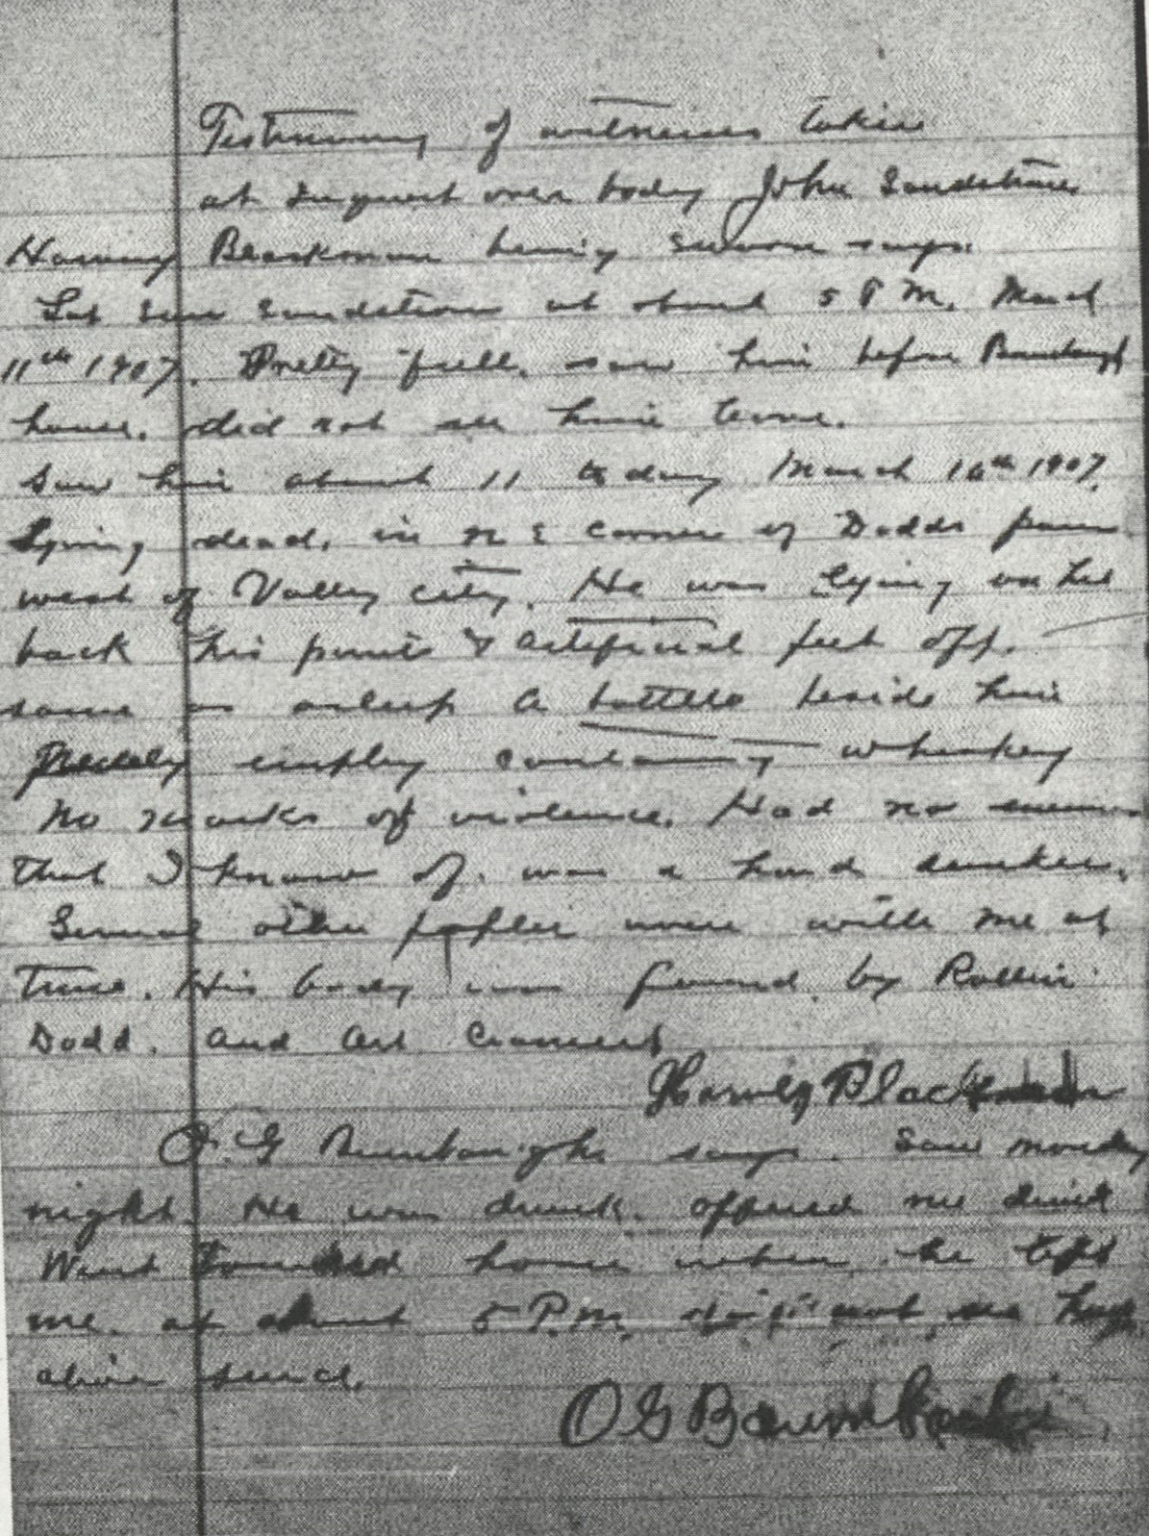 Testimony of witnesses taken
at Inquest over body John Sandstrom
Harvey Blackman being sworn says
Last seen Sandstrom at about 5 P M. March
11th 1907. Pretty full. saw him before
house. did not see him leave.
Saw him about 11 to day March 16th 1907.
Lying dead, in N E corner of Dodds farm
west of Valley city. He was lying on his
back his pants & artificial feet off.
same as asleep a bottle beside him
empty containing whiskey
No marks of violence. Had no
that I know of. was a hard drinker.
Several other people were with me at
time. His body was found by Rollin
Dodd. and Art
Harvey Blackman
O. G says. Saw monday
night. He was drunk. offered me drink
Went toward home when he left
me. at about 5 P.M. did not see him
alive since.
O G